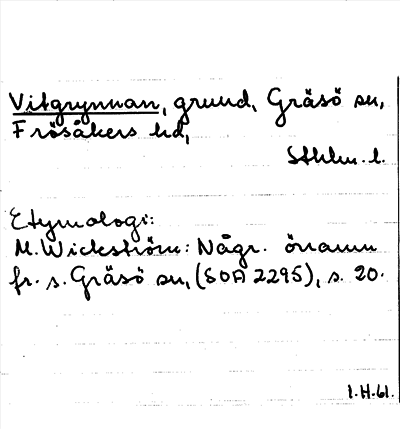 Vitgrynnan, grund, Gräsö sn,
Frösåkers hd,
Sthlm. l.
Etymologi:
M. Wickström: Någr. önamn
fr. s. Gräsö sn, (SOA 2295), s. 20.
I.H.61.